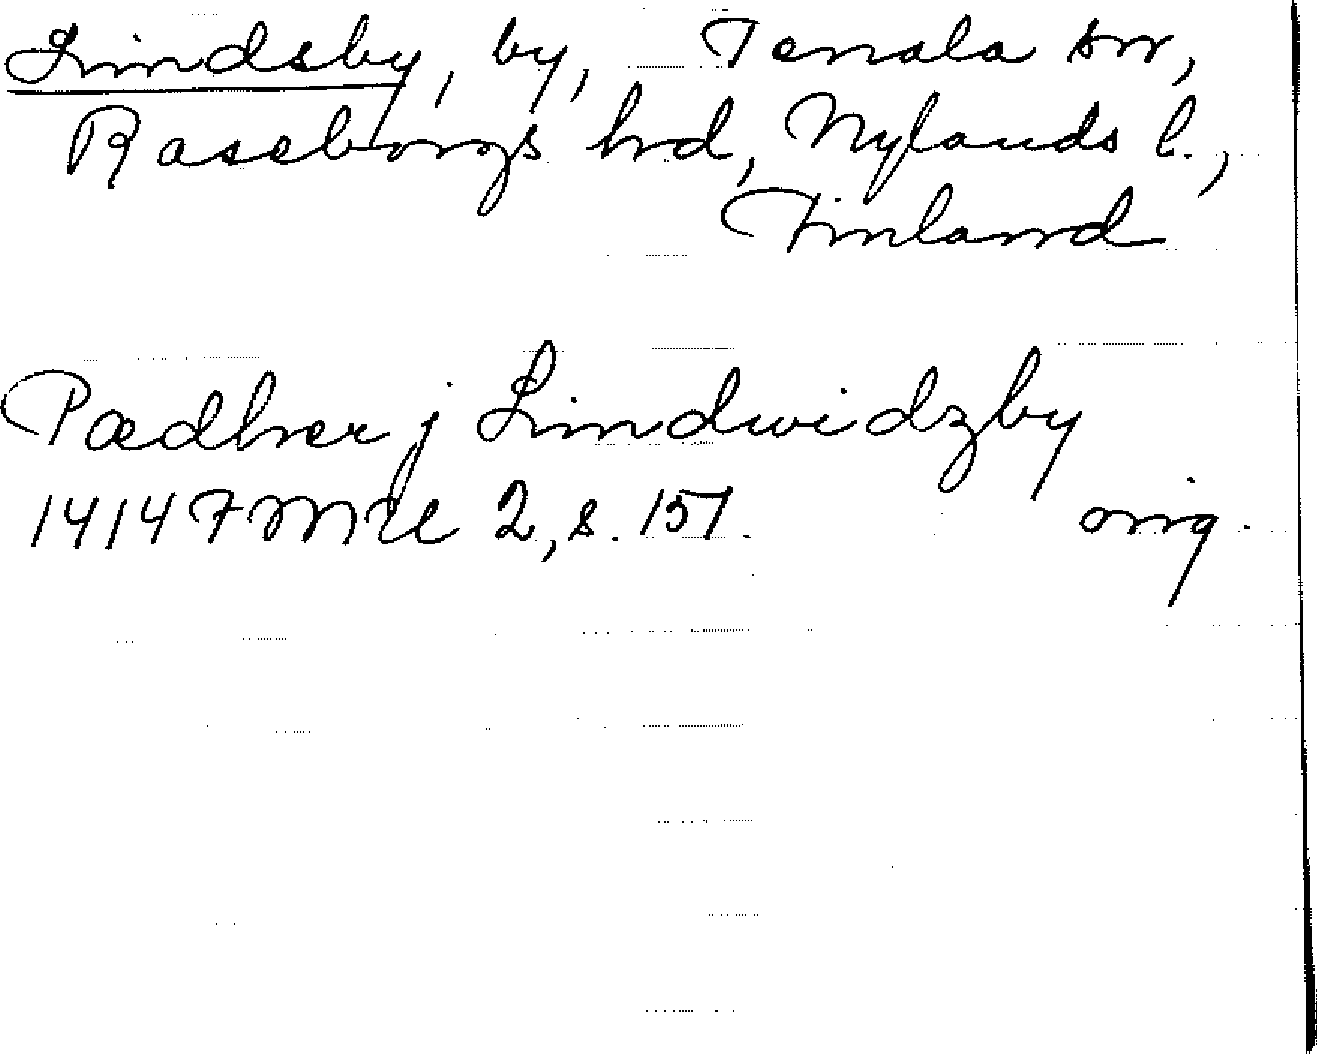 Lindsby, by, Tenala sn,
Raseborgs hrd, Nylands l.,
Finland
Pædher j Lindwidzby
1414 FMU 2, s. 157. orig.